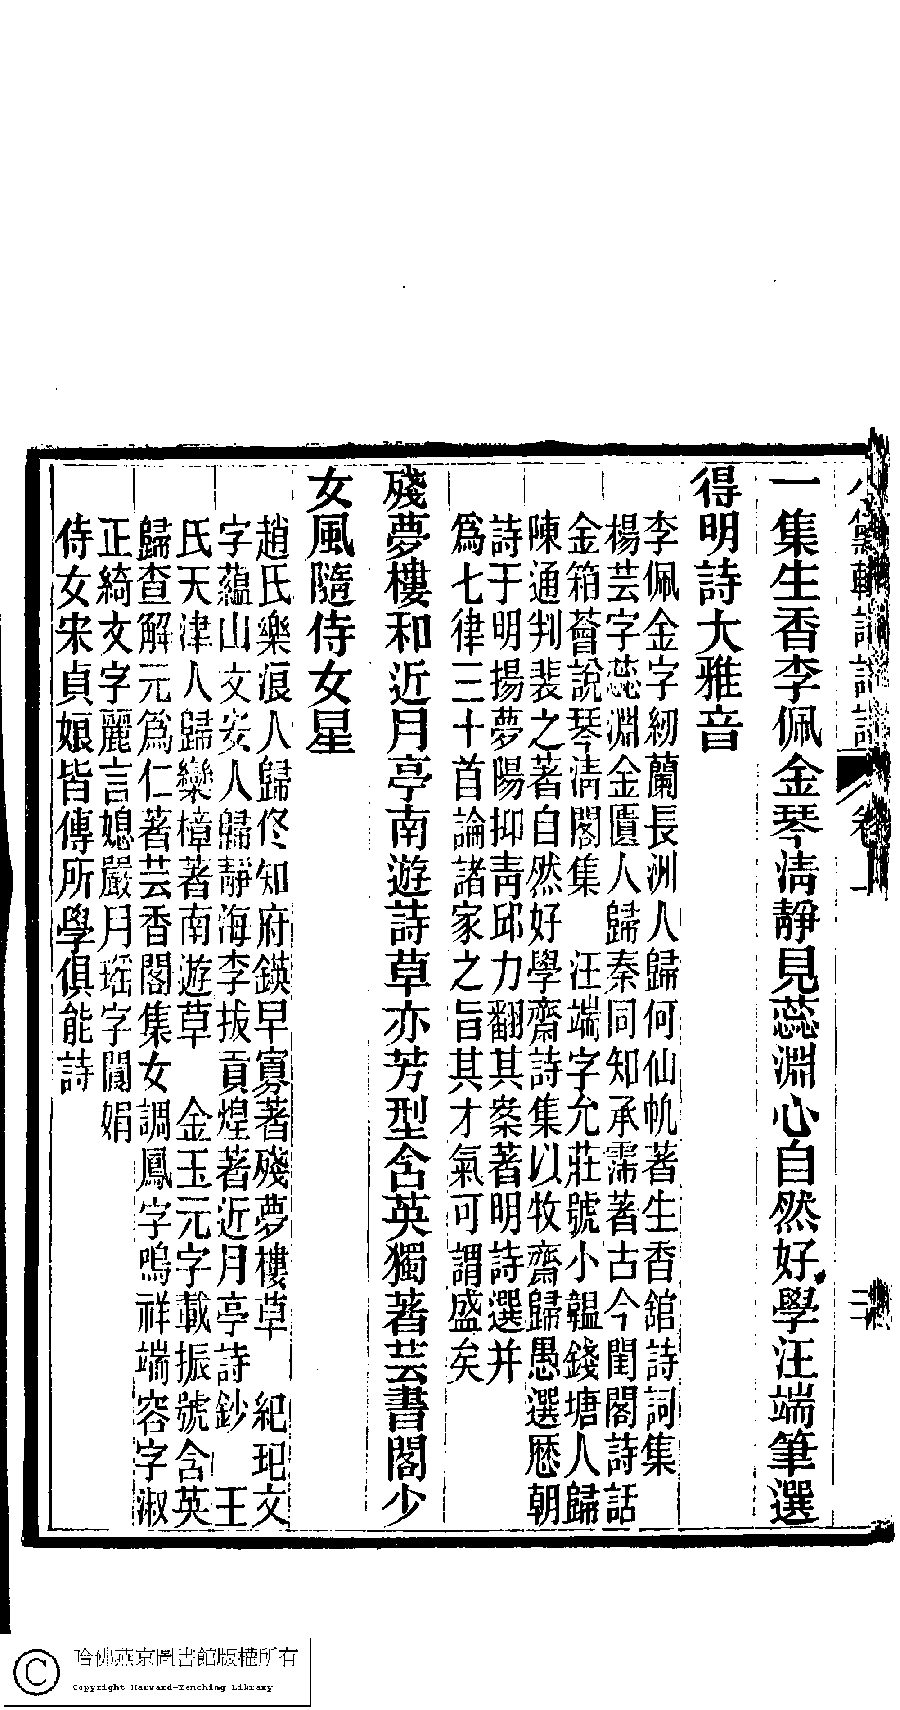 一集生香李佩金琴清靜見蕊淵心自然好學汪端筆選
得明詩大雅音
李佩金字紉蘭長洲人歸何仙帆著生香館詩詞集
楊芸字蕊淵金匱人歸秦同知承霈著古今閨閣詩話
金箱薈說琴清閣集　汪端字允莊號小韞錢塘人歸
陳通判裴之著自然好學齋詩集以牧齋歸愚選歷朝
詩于明揚夢陽抑青邱力翻其案著明詩選并
爲七律三十首論諸家之旨其才氣可謂盛矣
殘夢樓和近月亭南遊詩草亦芳型含英獨著芸書閣少
女風隨侍女星
趙氏樂浪人歸佟知府鍈早寡著殘夢樓草　紀玘文
字蘊山文安人歸靜海李拔貢煌著近月亭詩鈔　王
氏天津人歸欒樟著南遊草　金玉元字載振號含英
歸查解元爲仁著芸香閣集女調鳳字鳴祥端容字淑
正綺文字麗言媳嚴月瑤字閬娟
侍女宋貞娘皆傳所學俱能詩
卷一
二
哈佛燕京圖書館版權所有
Copyright Harvard-Yenching Library